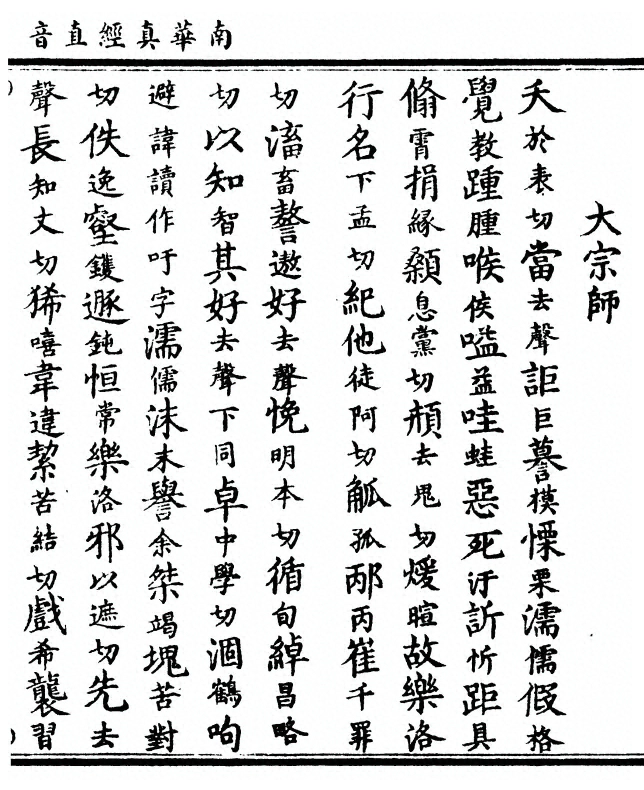 南華真經直音
大宗師
夭於表切當去聲詎巨謩模慄栗濡懦假格
覺教踵腫喉侯嗌益哇蛙惡死汙訢忻距具
翛霄捐緣顙息黨切頯去鬼切煖暄故樂洛
行名下孟切紀他徒阿切觚孤邴丙崔千罪
切滀畜謷遨好去聲悗明本切循旬綽昌略
切以知智其好去聲下同卓中學切涸鶴呴
避諱讀作吁字濡儒沫末譽余桀竭塊苦對
切佚逸壑鑊遯鈍恒常樂洛邪以遮切先去
聲長知丈切狶嘻韋違挈苦結切戲希襲習